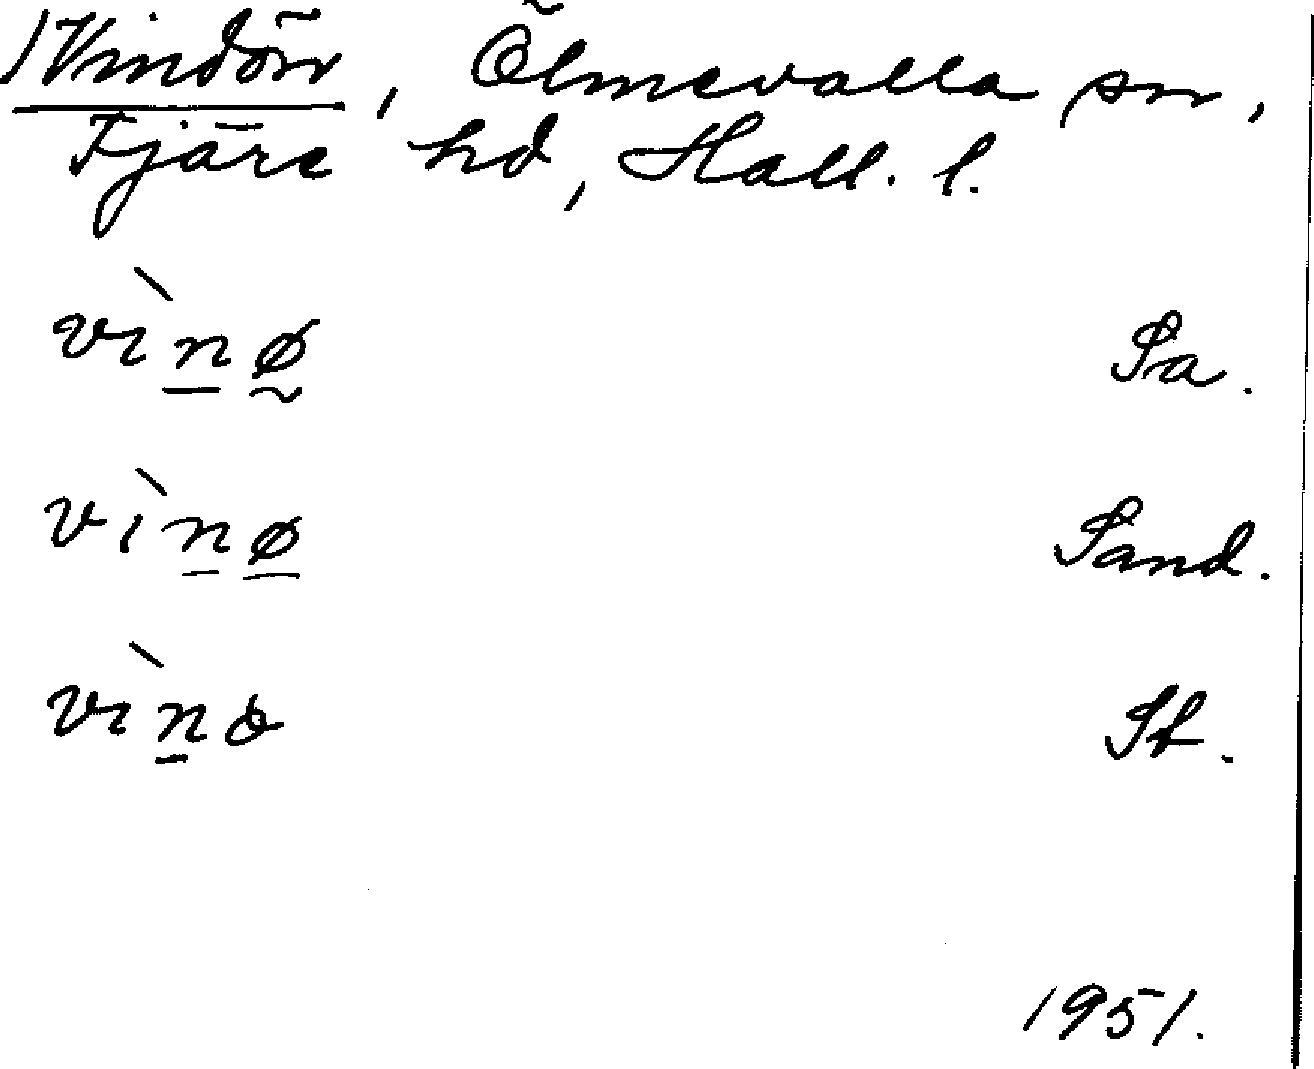 Vindön, Ölmevalla sn,
Fjäre hd, Hall. l.
vìnø Sa.
vìnø Sand.
vìnö St.
1951.